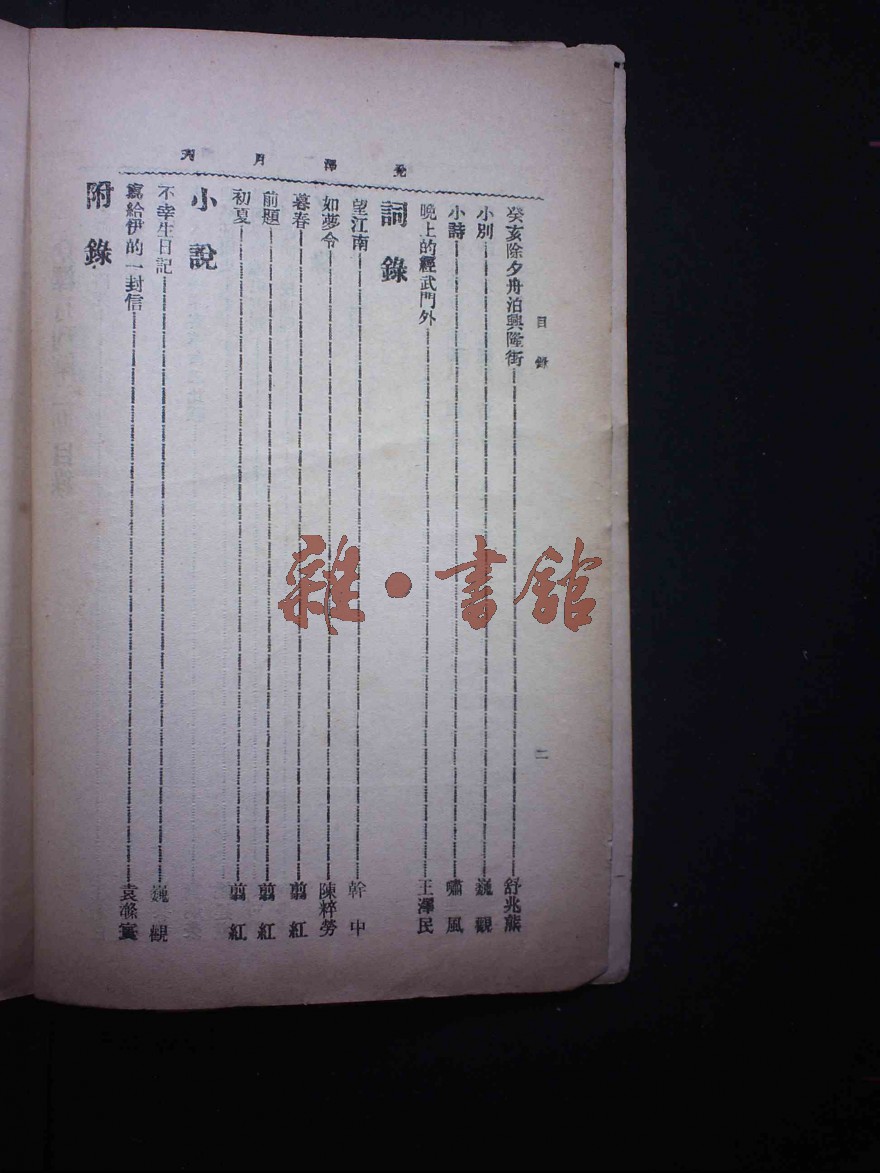 兌澤月刊
目錄
二
癸亥除夕舟泊興隆街 舒兆熊
小別 巍觀
小詩 嘯風
晚上的經武門外 王澤民
詞錄
望江南 幹中
如夢令 陳粹勞
暮春 翦紅
前題 翦紅
初夏 翦紅
小說
不幸生日記 巍觀
寫給伊的一封信 袁滌寰
附錄
雜·書館